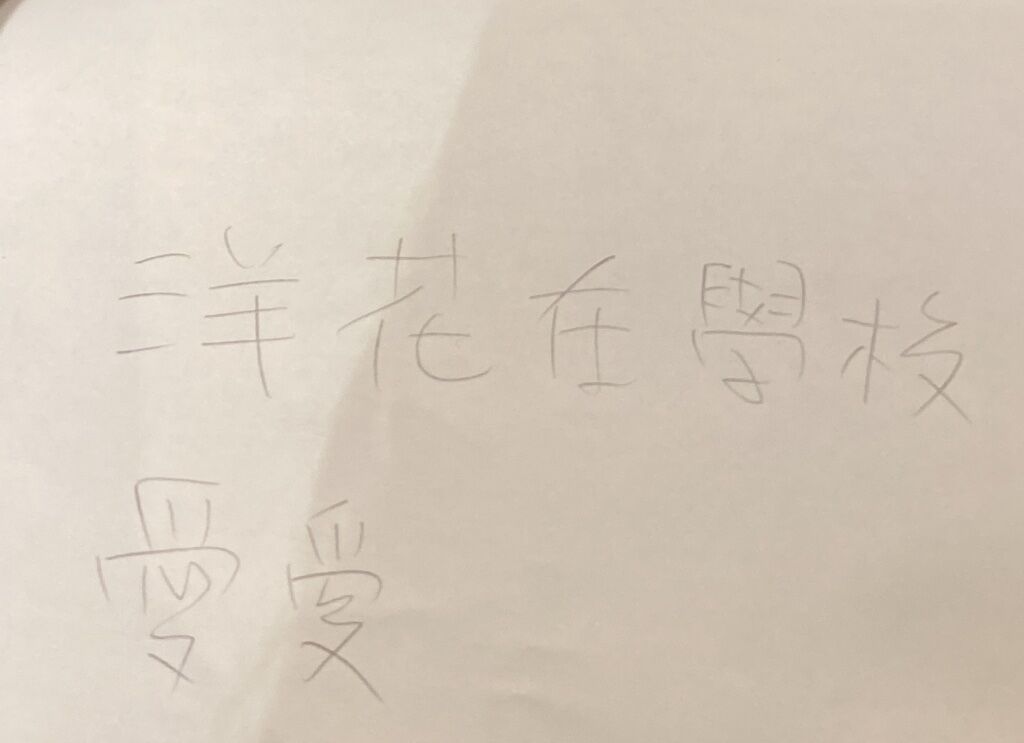 洋花在學校
愛受